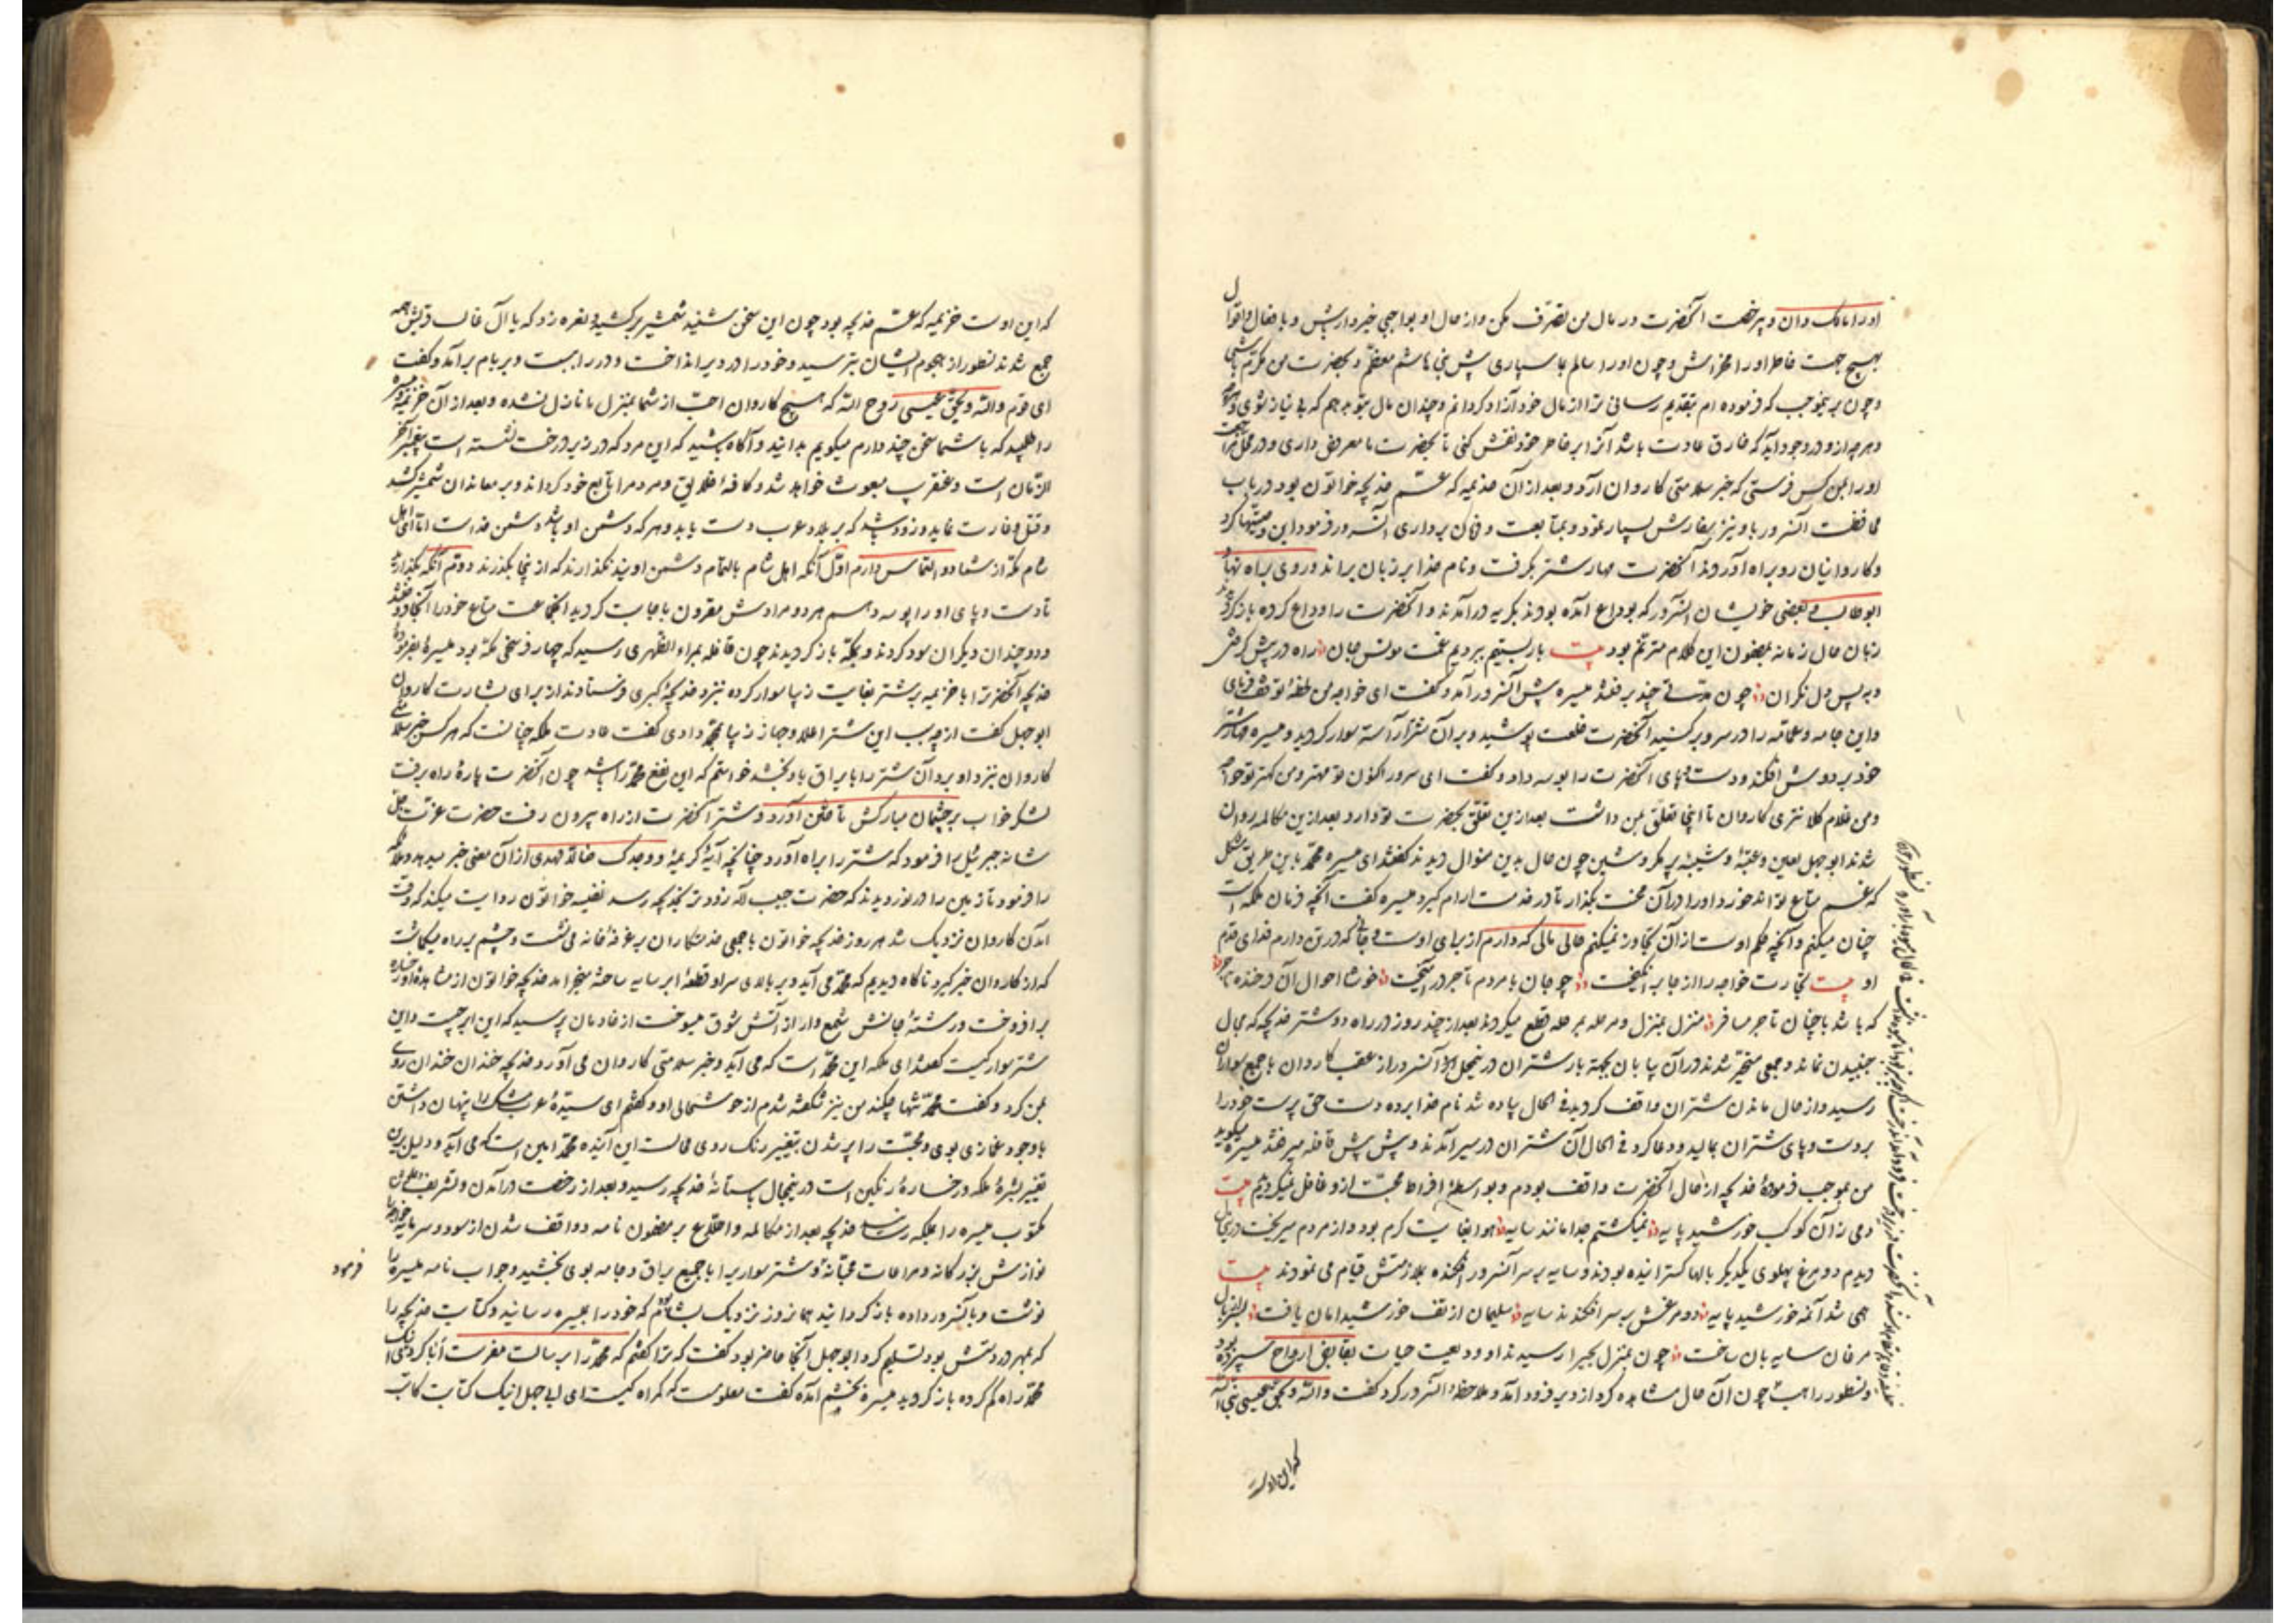 اورا مالک دان و بیرخصت آنحضرت در مال من تصرف مکن و از حال او بواجبی خبردار باش و با فعال و اقوال
بهیچ جهت خاطر اورا مخراش و چون اورا سالم باز سپاری پیش بنی هاشم معظم و بحضرت من مکرم باشی
و چون بر نموجب که فرموده ام بتقدیم رسانی ترا از مال خود آزاد کردانم و چندان مال بتو دهم که بی نیاز شوی
و هرچه ازو در وجود آید که خارق عادت باشد آنرا بر خاطر خود نقش کنی تا بحضرت ما معروض داری و در محل
اورا بمن کس فرستی که خبر سلامتی کاروان آرد و بعد از آن خزیمه که عم خدیجه خواتون بود در باب
محافظت آنسرور باو نیز سفارش بسیار نمود و بمتابعت و فرمان برداری آنسرور فرمود این وصیتها کرد
و کاروانیان رو براه آوردند آنحضرت مهار شتر بکرفت و نام خدا بر زبان براند و روی براه نهاد
ابوطالب و بعضی خویشان آنسرور که بوداع آمده بودند بکریه درآمدند و آنحضرت را وداع کرده باز کردیدند
زبان حال زمانه بمضمون این کلام مترنم بود بیت بار بستیم بردیم غمت مونس جان راه در پیش کرفتیم
و به پس دل نکران چون مدتی چند برفتند میسره پیش آنسرور آمد و کفت ای خواجه من لحظه توقف فرمای
و این جامه و عمامه را در سر و بر کنید آنحضرت خلعت پوشید و بر آن شتر آراسته سوار کردید و میسره مهار شتر
خود بر دوش افکند و دست و پای آنحضرت را بوسه داد و کفت ای سرور اکنون تو مهتر و من کهتر تو خواجه
و من غلام کلانتری کاروان تا اینجا تعلق بمن داشت بعد ازین تعلق بحضرت تو دارد بعد ازین مکالمه روان
شدند ابوجهل لعین و عتبه و شیبه پر مکر و شین چون حال بدین منوال دیدند کفتند ای میسره محمد باین طریق مشکل
که غم متاع تواند خورد اورا در آن محنت بگذار تا در خدمت آرام کیرد میسره کفت آنچه فرمان ملکه است
چنان میکنم و آنچه حکم اوست از آن تجاوز نمیکنم مالی که دارم از برای اوست و جانی که در تن دارم فدای قدم
او بیت تجارت خواجه را از جا برانکیخت چو جان با مردم تاجر درآمیخت خوشا احوال آن فرخنده
که باشد با چنان تاجر مسافر منزل بمنزل و مرحله بمرحله قطع میکردند بعد از چند روز در راه دو شتر خدیجه که مجال
جنبیدن نماند و جمعی متحیر شدند در آن بیابان بجهة بار شتران در ینحال آنسرور از عقب کاروان با جمع سواران
رسید و از حال ماندن شتران واقف کردید فی الحال پیاده شد نام خدا برده دست حق پرست خود را
بر دست و پای شتران بمالید و دعا کرد فی الحال آن شتران در سیر آمدند و پیش پیش قافله میرفتند میسره میکوید
من بموجب فرموده خدیجه از حال آنحضرت واقف بودم و بواسطه افراط محبت ازو غافل نمیکردیدم بیت
دمی زآن کوکب خورشید پایه نمیکشتم جدا مانند سایه هوا بغایت کرم بود و از مردم میریخت
دیدم دو مرغ پهلوی یکدیکر بالها کسترانیده بودند و سایه بر سر آنسرور افکنده بلازمتش قیام می نمودند بیت
همی شد آنمه خورشید پایه دو مرغش بر سر افکندند سایه سلیمان از تف خورشید امان یافت
مرغان سایه بان ساخت چون بمنزل بحیرا رسیدند او ودیعت حیات بقابض ارواح سپرده بود
و نسطور راهب چون آن حال مشاهده کرد از دیر فرود آمد و ملاحظه آنسرور کرد کفت والله و بحق عیسی
که این اوست
که این اوست خزیمه که عم خدیجه بود چون این سخن شنید شمشیر برکشید و نعره زد که یا آل غالب قریش همه
جمع شدند نسطور از هجوم ایشان بترسید و خود را در دیر انداخت و در را ببست و بر بام برآمد و کفت
ای قوم والله و بحق عیسی روح الله که هیچ کاروان احب از شما بمنزل ما نازل نشده و بعد از آن خزیمه
را طلبید که با شما سخن چند دارم میکویم بدانید و آکاه باشید که این مرد که در زیر درخت نشسته است پیغمبر آخر
الزمان است و عنقریب مبعوث خواهد شد و کافه خلایق و مردم را تابع خود کرداند و بر معاندان شمشیر کشد
و قتل و غارت نماید و زود باشد که بر بلاد عرب دست یابد و هر که دشمن او باشد دشمن خداست اما ای اهل
مکه از شما دو التماس دارم اول آنکه اهل شام بالتمام دشمن اویند نگذارند که از ینجا بگذرند دوم آنکه بگذارید
تا دست و پای او را بوسه دهم هر دو مرادش مقرون باجابت کردید آنجماعت متاع خود را آنجا فروختند
و دو چندان دیکران سود کردند و بمکه باز کردیدند چون قافله بمرالظهران رسید که چهار فرسخی مکه بود میسره
خدیجه آنحضرت را با خزیمه بر شتر بغایت زیبا سوار کرده بنزد خدیجه کبری فرستادند از برای بشارت کاروان
ابوجهل کفت از چه سبب این شتر اعلا و جاز زیبا بمحمد دادی کفت عادت ملکه چنانست که هر کس خبر سلامتی
کاروان بنزد او برد آن شتر را با یراق باو بخشد خواستم که این نفع محمد را باشد چون آنحضرت پاره راه برفت
لشکر خواب بر چشمان مبارکش تاختن آورد و شتر آنحضرت از راه بیرون رفت حضرت عزت جل
شانه جبرئیل را فرمود که شتر را براه آورد چنانچه آیه کریمه و وجدک ضالا فهدی از آن معنی خبر میدهد و ملائکه
را فرمود تا زمین را درنوردیدند که حضرت حبیب الله زودتر بخدیجه رسد نفیسه خواتون روایت میکند که وقت
آمدن کاروان نزدیک شد هر روز خدیجه خواتون با جمعی خدمتکاران بر غرفه خانه می نشست و چشم بر راه میکماشت
که از کاروان خبر کیرد ناکاه دیدیم که محمد می آید و بر بالای سر او قطعه ابر سایه ساخته میخرامد خدیجه خواتون از مشاهده
برافروخت و رشته جانش شمع وار از آتش شوق میسوخت از خادمان پرسید که این ابر چیست و این
شتر سوار کیست کفتند ای ملکه این محمد است که می آید و خبر سلامتی کاروان می آورد خدیجه خندان خندان روی
بمن کرد و کفت محمد تنها میکند من نیز شکفته شدم از خوشحالی او و کفتم ای سیده عرب مشک را پنهان داشتن
با وجود غمازی بوی و محبت را پر شدن بتغییر رنک روی محالست این آینده محمد امین است که می آید و دلیل برین
تغییر بشره ملکه و رخساره رنکین است در ینحال بآستانه خدیجه رسید و بعد از رخصت درآمدن و تشریف
مکتوب میسره را بملکه رسانید خدیجه بعد از مکالمه و اطلاع بر مضمون نامه و واقف شدن از سود و سرمایه
نوازش بزرکانه و مراعات محبانه و شتر سواریرا با جمیع یراق و جامه بوی بخشید و جواب نامه میسره را
فرمود
نوشت و بآنسرور داده باز کردانید همانروز نزدیک بشام که خود را بمیسره رسانید و کتابت خدیجه را
که بمهر در دستش بود تسلیم کرد ابوجهل آنجا حاضر بود کفت که ترا کفتم که محمد را برسالت مفرست ابا کردی
محمد راه کم کرده باز کردید میسره بخشم آمده کفت معلومست که کمراه کیست ای ابوجهل اینک کتابت